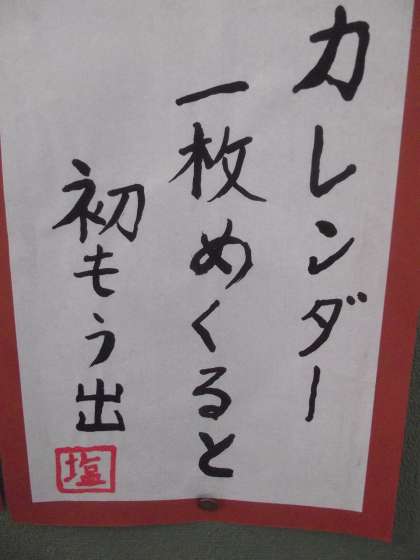 カレンダー
一枚めくると
初もう出
塩